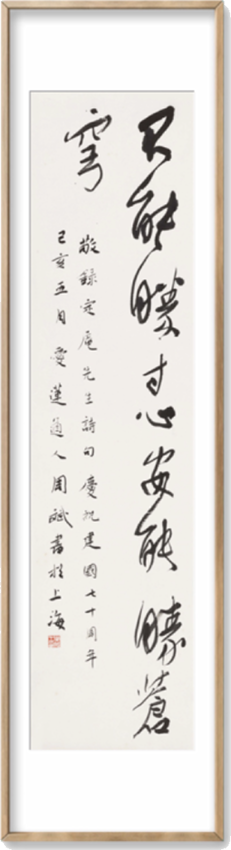 不能勝寸心安能勝蒼
穹
敬録定庵先生詩句慶祝建國七十周年
己亥五月愛蓮道人周斌書於上海